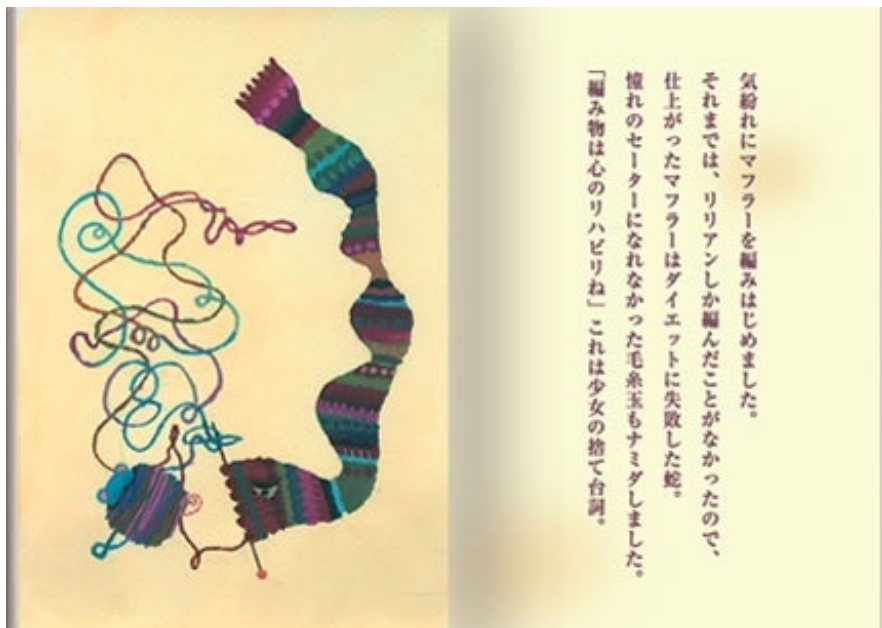 気紛れにマフラーを編みはじめました。
それまでは、リリアンしか編んだことがなかったので、
仕上がったマフラーはダイエットに失敗した蛇。
憧れのセーターになれなかった毛糸玉もナミダしました。
「編み物は心のリハビリね」これは少女の捨て台詞。